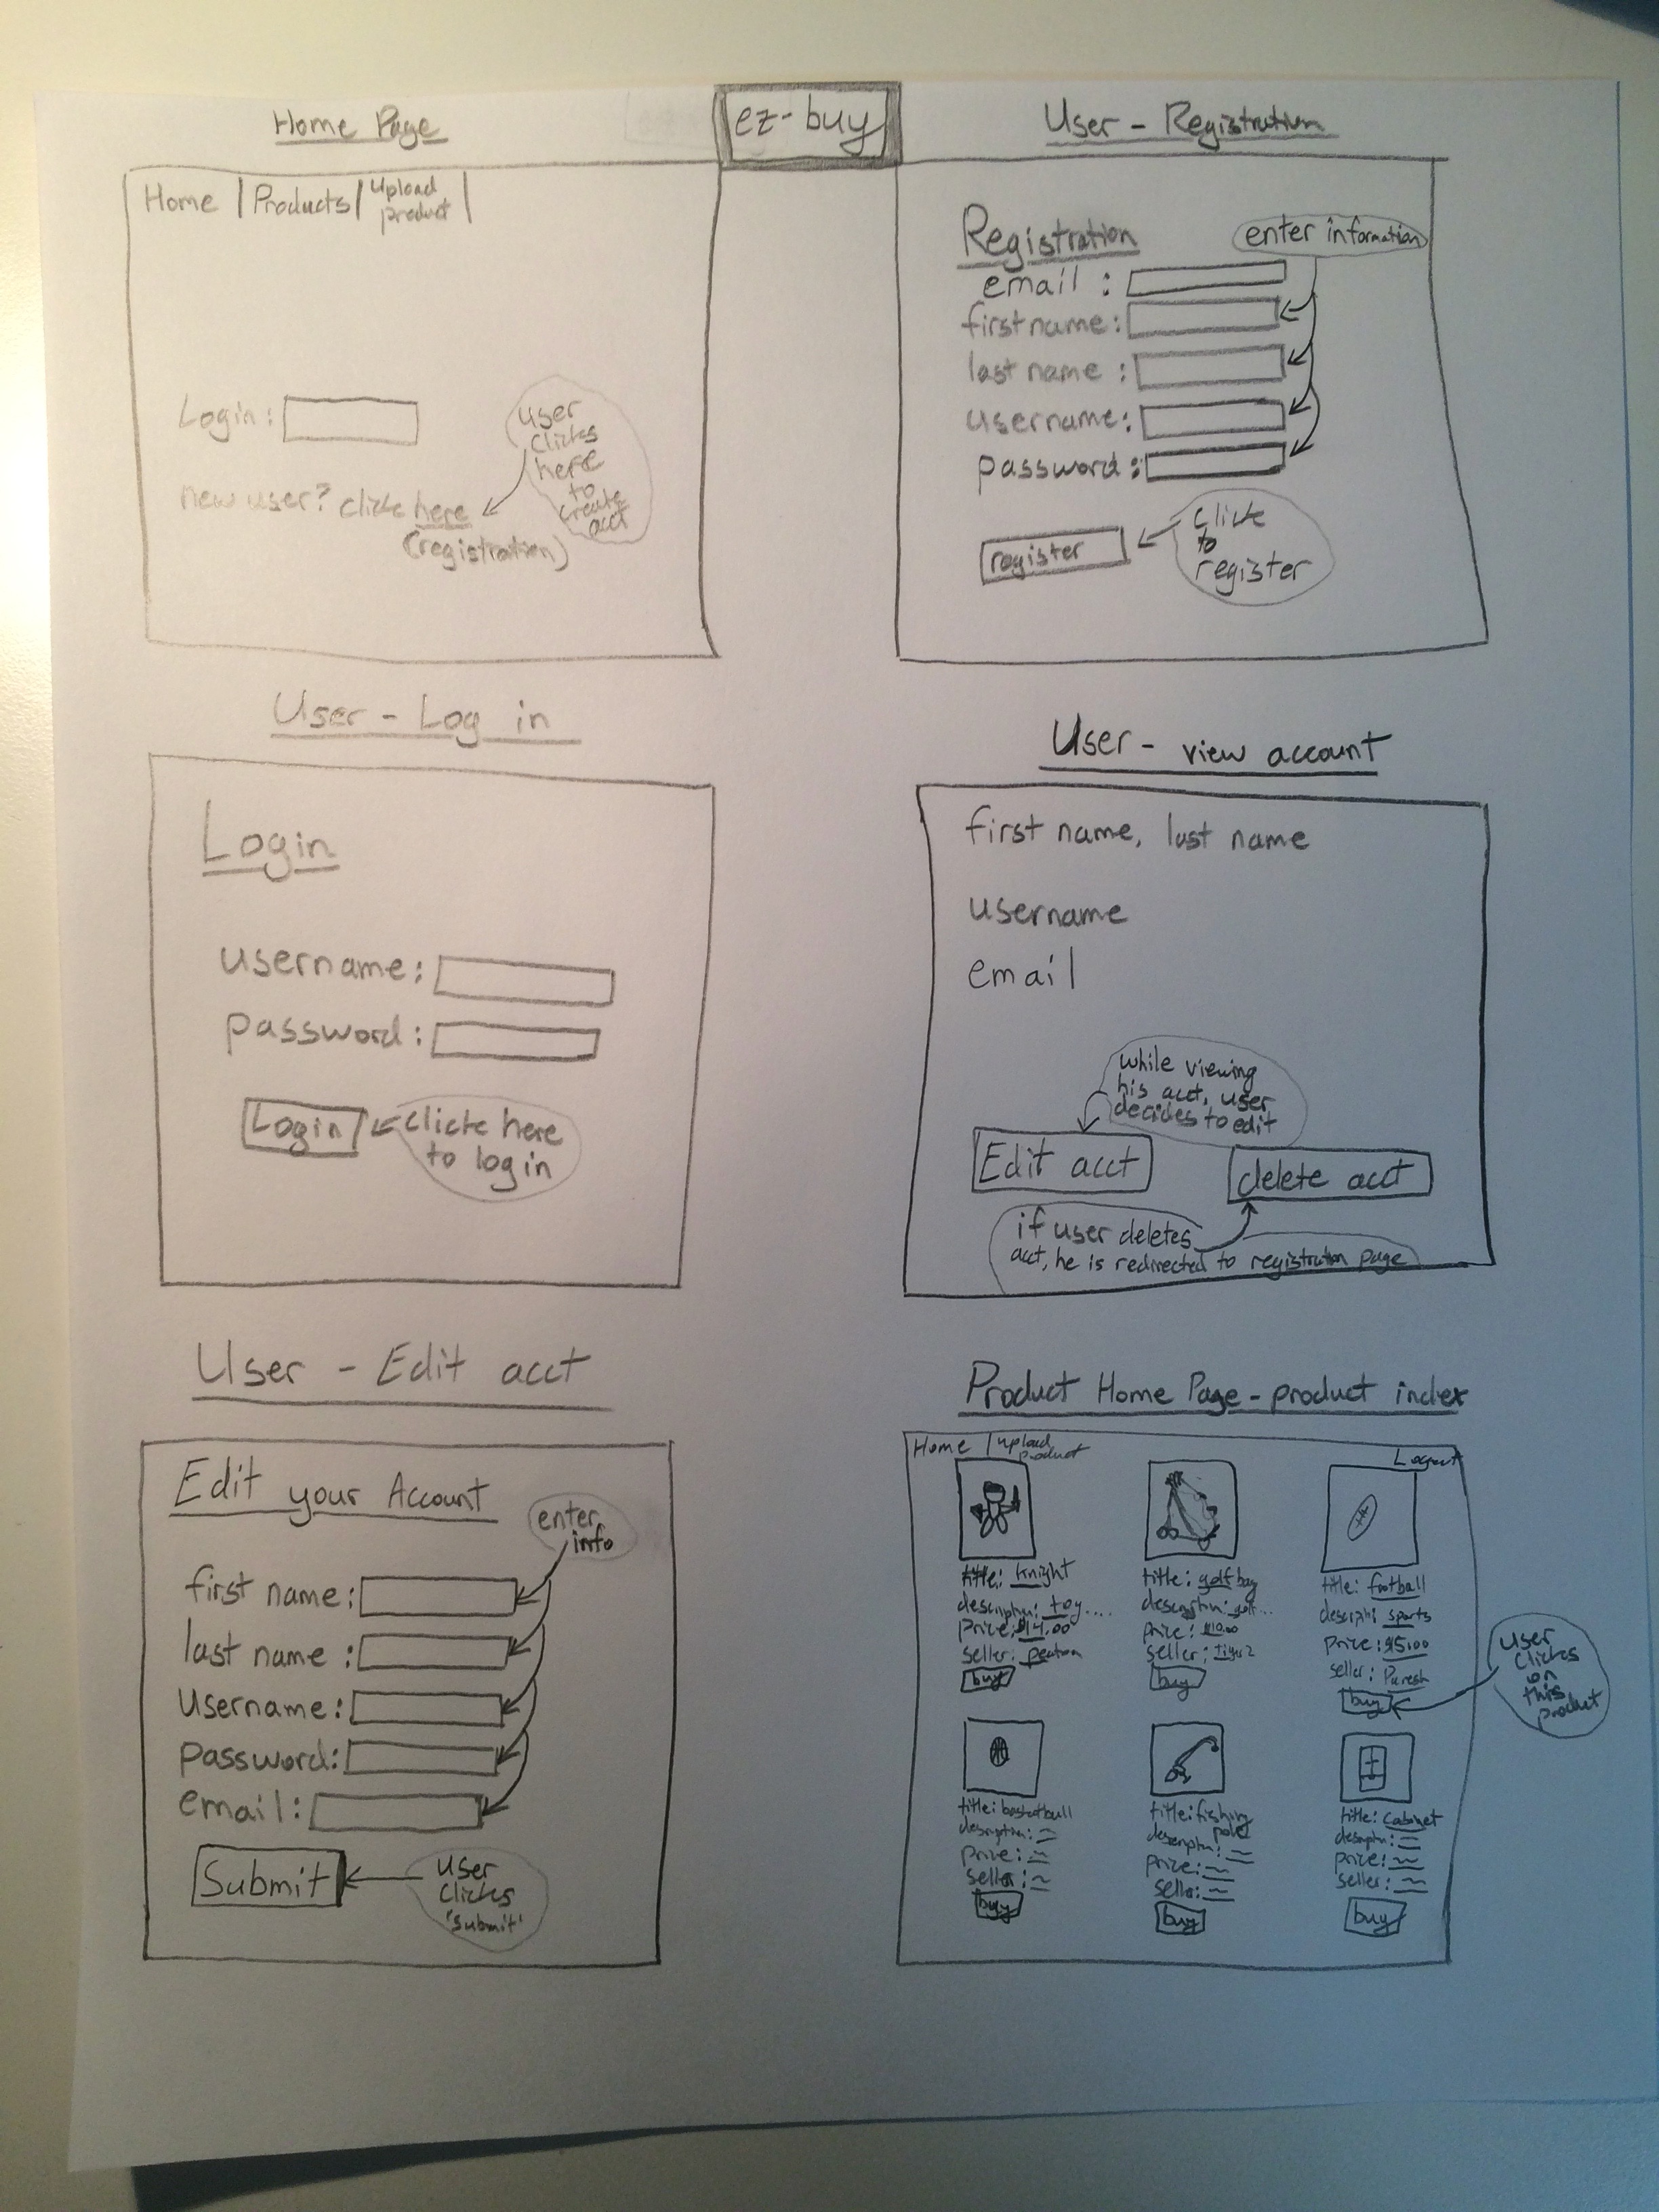 ez-buy
Home Page
Home | Products | Upload product |
Login:
new user? click here
(registration)
user
clicks
here
to
create
acct
User - Registration
Registration
enter information
email :
first name:
last name :
username:
password:
register
click
to
register
User - Log in
Login
username:
password:
Login
click here
to log in
User - view account
first name, last name
username
email
while viewing
his acct, user
decides to edit
Edit acct
delete acct
if user deletes
acct, he is redirected to registration page
User - Edit acct
Edit your Account
enter
info
first name:
last name :
Username:
password:
email:
Submit
user
clicks
'submit'
Product Home Page - product index
Home | upload product
Logout
title: knight
description: toy....
Price: $14.00
seller:
buy
title: golf bag
description: golf...
price: $10.00
seller: Tiger2
buy
title: football
descriptn: sports
price: $5.00
seller: Paresh
buy
user
clicks
on
this
product
title: basketball
description:
price:
seller:
buy
title: fishing
pole
description:
price:
seller:
buy
title: Cabinet
descriptn:
price:
seller:
buy